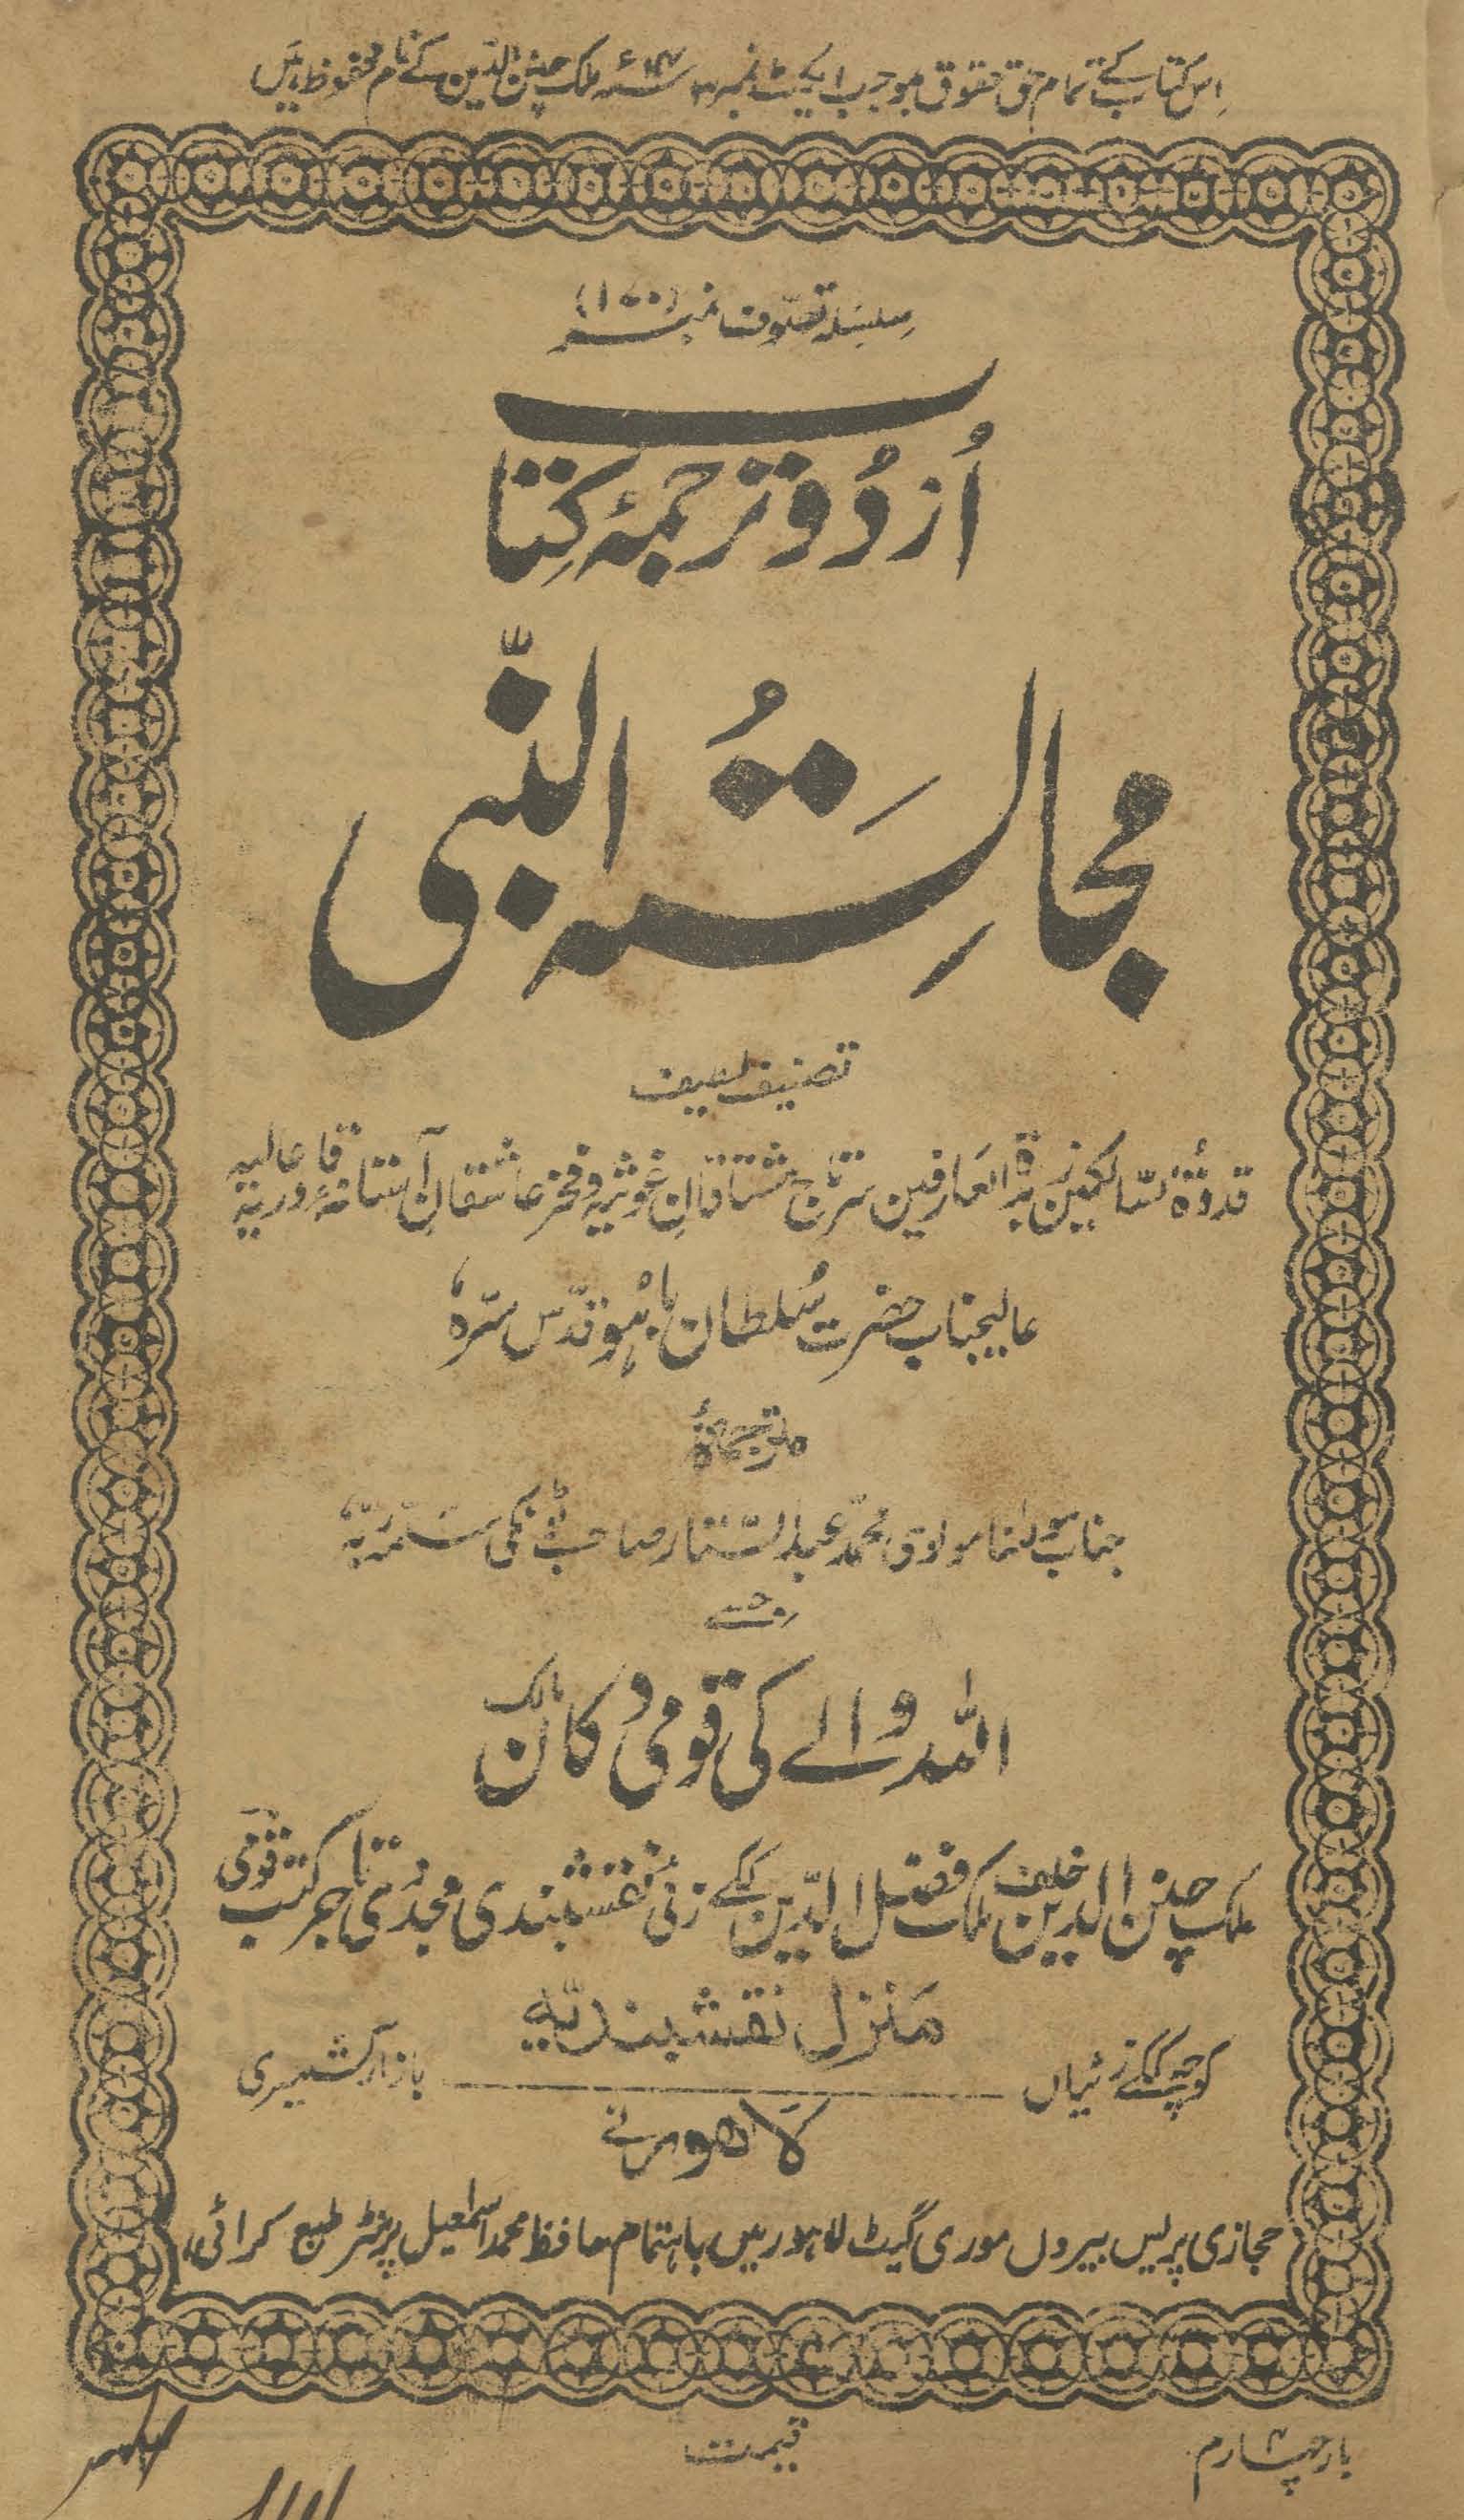 اس کتاب کے تمام حق حقوق بموجب ایکٹ نمبر ۳ ۱۹۱۴ء ملک چنن الدین کے نام محفوظ ہیں
سلسلہ تصوف نمبر (۱۷۰)
اُردُو ترجمۂ کتاب
مجالِسَۃُ النّبی
تصنیف لطیف
قدوۃ السّالکین زبدۃ العارفین سرتاج مشتاقانِ غوثیہ و فخر عاشقانِ آستانۂ عالیہ قادریہ
عالیجناب حضرت سُلطان باہُو قدّس سرّہٗ
مترجمۂ
جناب مولٰنا مولوی محمّد عبدالستّار صاحب ٹونکی
جسے
اللہ والے کی قومی دکان
مالک
ملک چنن الدین خلف ملک فضل الدّین ککے زئی نقشبندی مجدّدی تاجر کتب قومی
منزل نقشبندیّہ
کوچہ ککے زئیاں بازار کشمیری
لاہور نے
حجازی پریس بیرون موری گیٹ لاہور میں باہتمام حافظ محمد اسمٰعیل پرنٹر طبع کرائی
بار چہارم قیمت